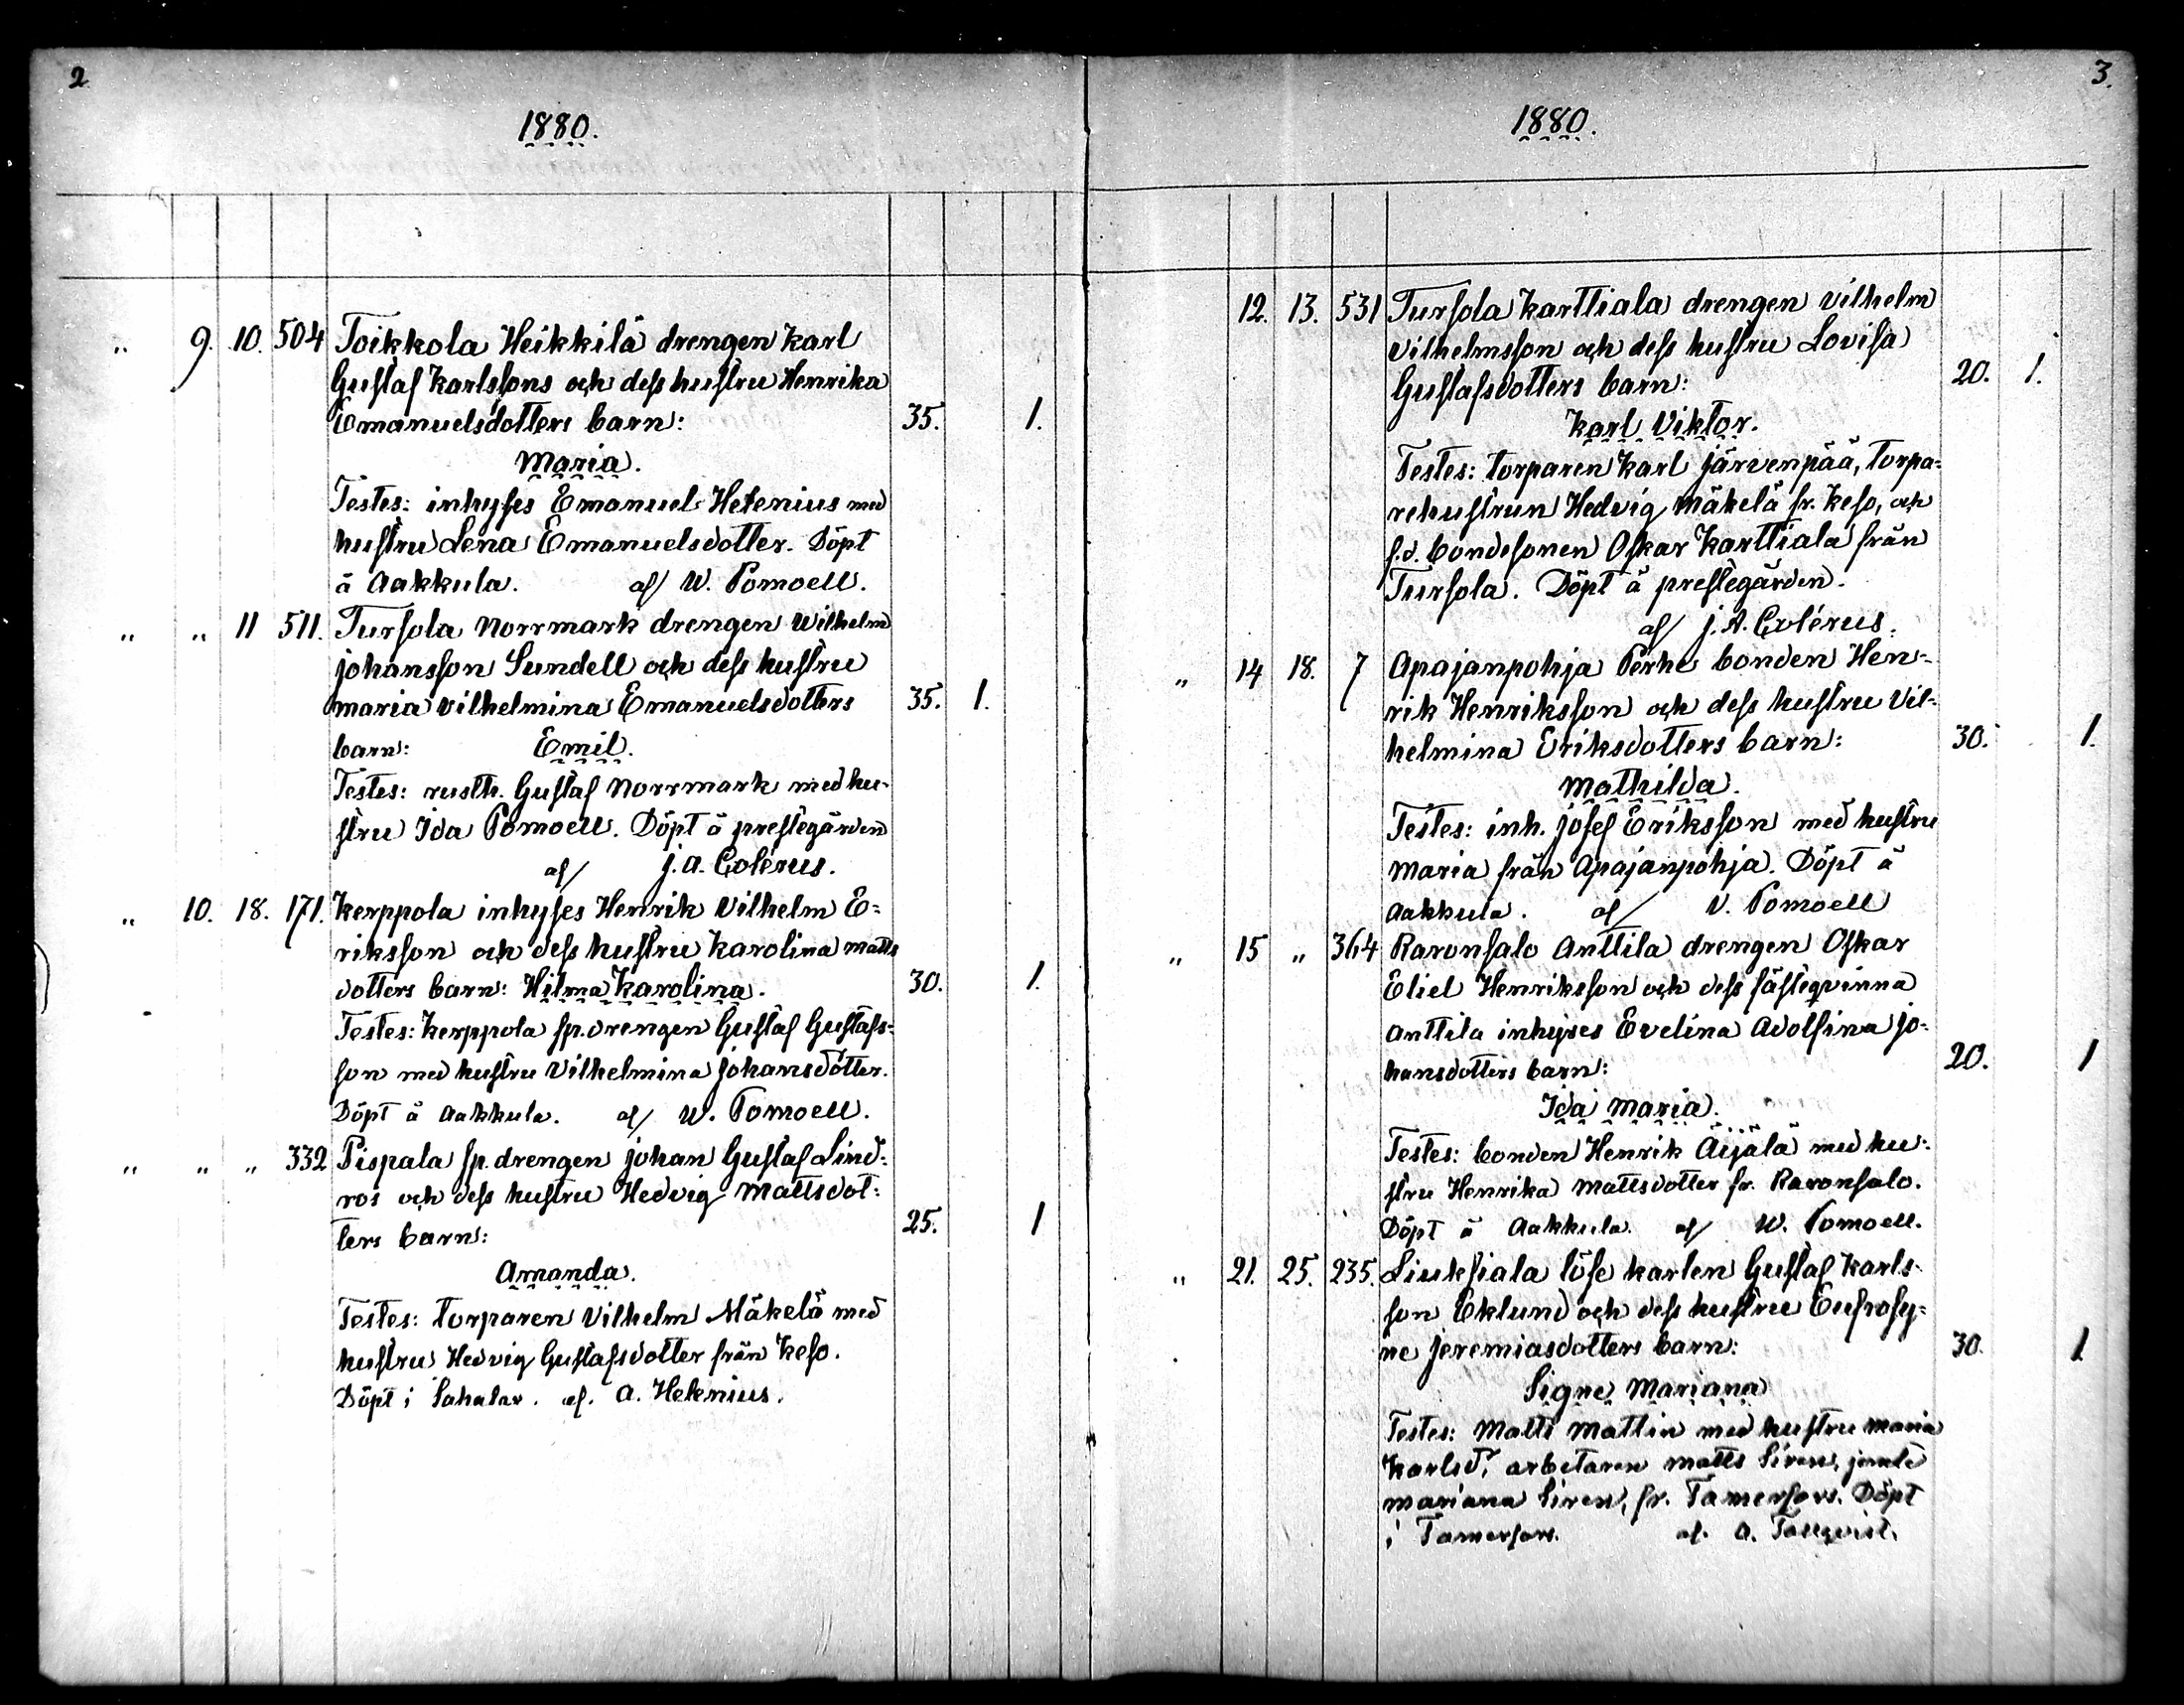 2
1880.
" 9. 10. 504 Toikkola Heikkilä drengen Karl
Gustaf Karlssons och dess hustru Henrika
Emanuelsdotters barn: 35. 1.
Maria.
Testes: inhyses Emanuel Helenius med
hustru Lena Emanuelsdotter. Döpt
å Aakkula. af W. Pomoell.
" " 11 511. Tursola Norrmark drengen Wilhelm
Johansson Sundell och dess hustru
Maria Vilhelmina Emanuelsdotters 35. 1.
barn: Emil.
Testes: rusth. Gustaf Norrmark med hu-
stru Ida Pomoell. Döpt å prestegården
af J. A. Colérus.
" 10. 18. 171. Kerppola inhyses Henrik Vilhelm E=
riksson och dess hustru Karolina Matts
dotters barn: Hilma Karolina. 30. 1.
Testes: Kerppola sp. drengen Gustaf Gustafs=
son med hustru Vilhelmina Johansdotter.
Döpt å Aakkula. af W. Pomoell.
" " " 332 Pispala sp. drengen Johan Gustaf Lind=
ros och dess hustru Hedvig Mattsdot=
ters barn: 25. 1
Amanda.
Testes: torparen Vilhelm Mäkelä med
hustru Hedvig Gustafsdotter från Keso.
Döpt i Sahalax. af. A. Helenius.
3.
1880.
12. 13. 531 Tursola Karttiala drengen Vilhelm
Vilhelmsson och dess hustru Lovisa
Gustafsdotters barn: 20. 1.
Karl Viktor.
Testes: torparen Karl Järvenpää, torpa=
rehustrun Hedvig Mäkelä fr. Keso, och
f.d. bondesonen Oskar Karttiala från
Tursola. Döpt å prestegården.
af J. A. Colérus.
" 14 18. 7 Apajanpohja Perhe bonden Hen=
rik Henriksson och dess hustru Vil=
helmina Eriksdotters barn: 30. 1.
Mathilda.
Testes: inh. Josef Eriksson med hustru
Maria från Apajanpohja. Döpt å
Aakkula. af V. Pomoell
" 15 " 364 Raronsalo Anttila drengen Oskar
Eliel Henriksson och dess fästeqvinna
Anttila inhyses Evelina Adolfina Jo=
hansdotters barn: 20. 1
Ida Maria.
Testes: bonden Henrik Äijälä med hu=
stru Henrika Mattsdotter fr. Raronsalo.
Döpt å Aakkula. af W. Pomoell.
" 21. 25. 235. Liuksiala löse karlen Gustaf Karls=
son Eklund och dess hustru Eufrosy=
ne Jeremiasdotters barn: 30. 1
Signe Mariana
Testes: Matts Mattin med hustru Maria
Karlsd., arbetaren Matts Siren, jemte
Mariana Siren, fr. Tamerfors. Döpt
i Tamerfors. af. A. Tallqvist.